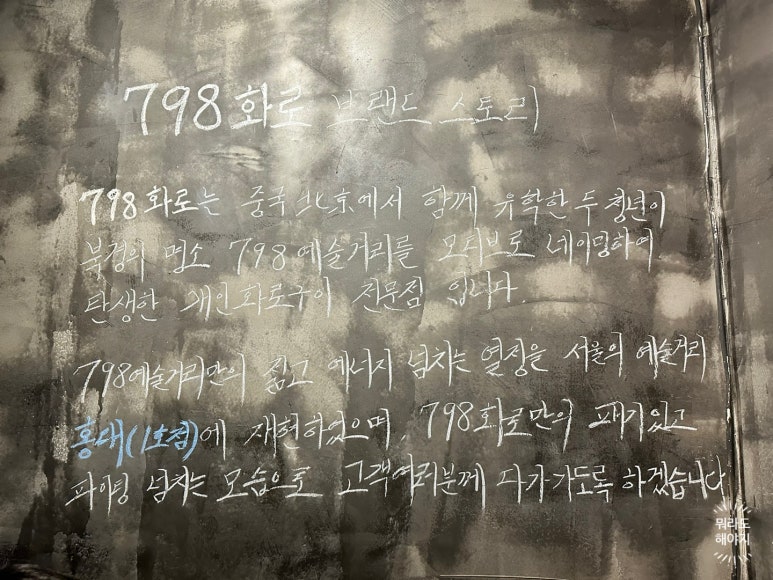 798화로 브랜드 스토리
798화로는 중국 北京에서 함께 유학한 두 청년이
북경의 명소 798예술거리를 모티브로 네이밍하여
탄생한 개인화로구이 전문점 입니다.
798예술거리만의 젊고 에너지 넘치는 열정을 서울의 예술거리
홍대(1호점)에 재현하였으며, 798화로만의 패기있고
파이팅 넘치는 모습으로 고객여러분께 다가가도록 하겠습니다
뭐라도
해야지